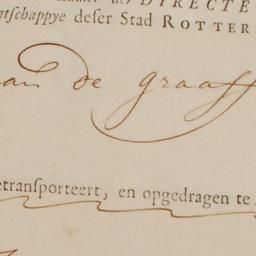 der DIRECTE
ntschappye deser Stad ROTTER
van de graaff
etransporteert, en opgedragen te